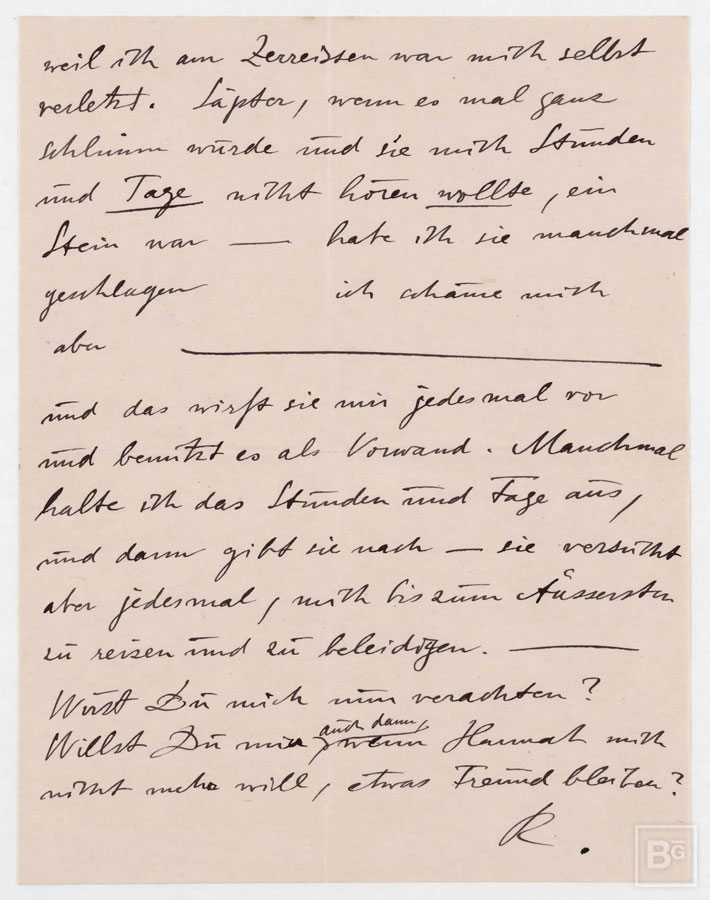 weil ich am Zerreissen war mich selbst
verletzt. Später, wenn es mal ganz
schlimm wurde und sie mich Stunden
und Tage nicht hören wollte, ein
Stein war — habe ich sie manchmal
geschlagen ich schäme mich
aber —
und das wirft sie mir jedesmal vor
und benutzt es als Vorwand. Manchmal
halte ich das Stunden und Tage aus,
und dann gibt sie nach — sie versucht
aber jedesmal, mich bis zum Äussersten
zu reizen und zu beleidigen. —
Wirst Du mich nun verachten?
auch dann,
Willst Du mir wenn Hannah mich
nicht mehr will, etwas Freund bleiben?
R.
BG